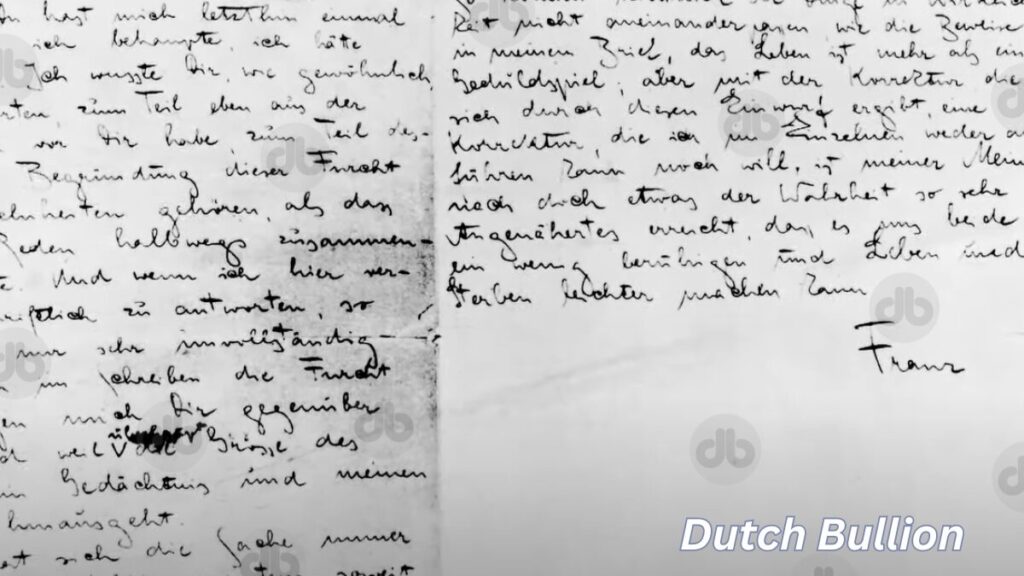 Du hast mich letzthin einmal
ich behaupte, ich hätte
Ich wusste Dir, wie gewöhnlich,
zum Teil eben aus der
vor Dir habe, zum Teil des-
Begründung dieser Furcht
gehören, als dass
Reden halbwegs zusammen-
Und wenn ich hier ver-
zu antworten, so
nur sehr unvollständig
im Schreiben die Furcht
mich Dir gegenüber
weil die Grösse des
Gedächtnis und meinen
hinausgeht.
sich die Sache immer
soweit
nicht aneinander passen, wie die Beweise
in meinem Brief, das Leben ist mehr als ein
Geduldspiel; aber mit der Korrektur die
sich durch diesen Einwurf ergibt, eine
Korrektur, die ich im Einzelnen weder
führen kann noch will, ist meiner
nach doch etwas der Wahrheit so sehr
Angenähertes erreicht, dass es uns beide
ein wenig beruhigen und Leben und
Sterben leichter machen kann
Franz
Dutch Bullion